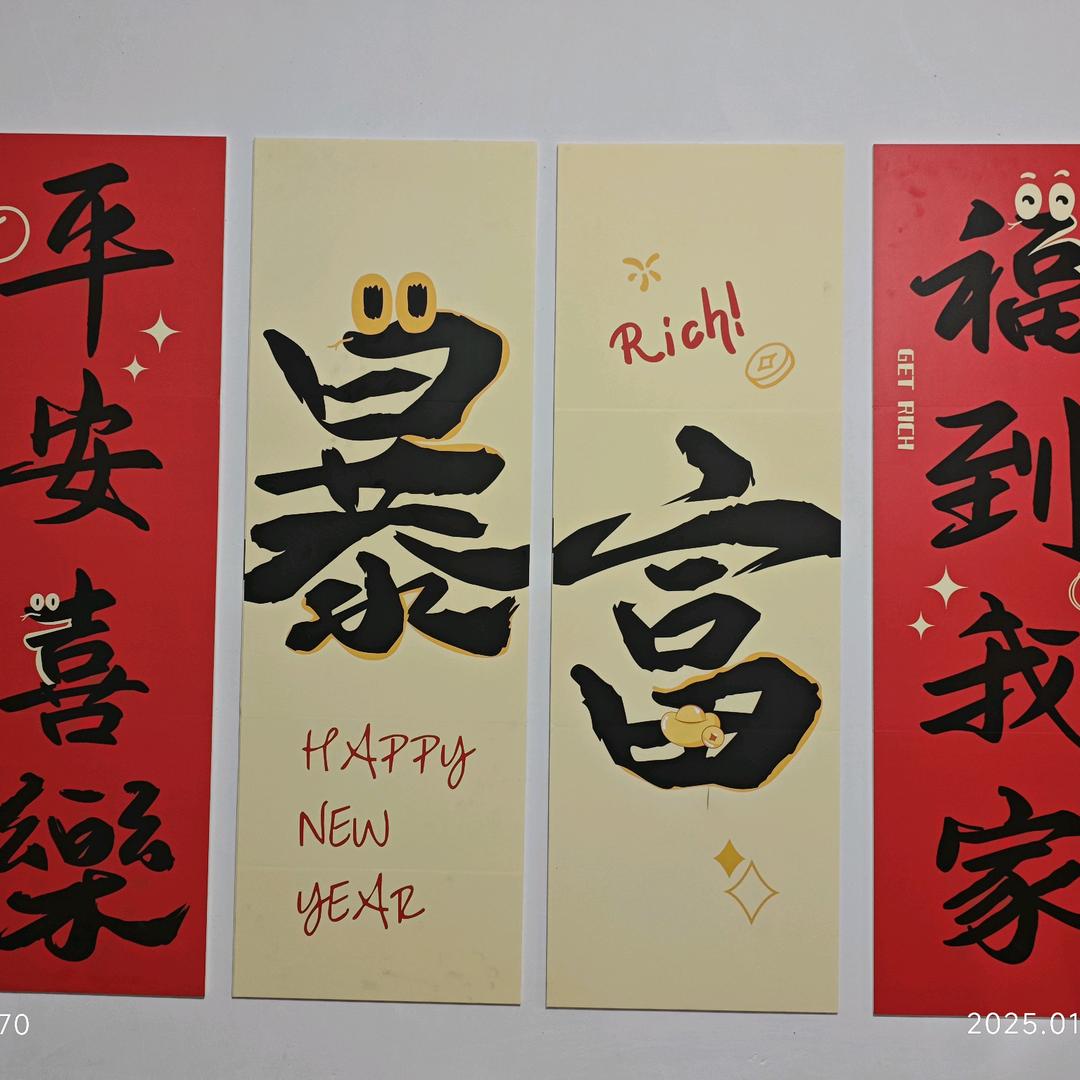 平安喜樂
暴
HAPPY
NEW
YEAR
Rich!
富
GET RICH
福到我家
70
2025.01